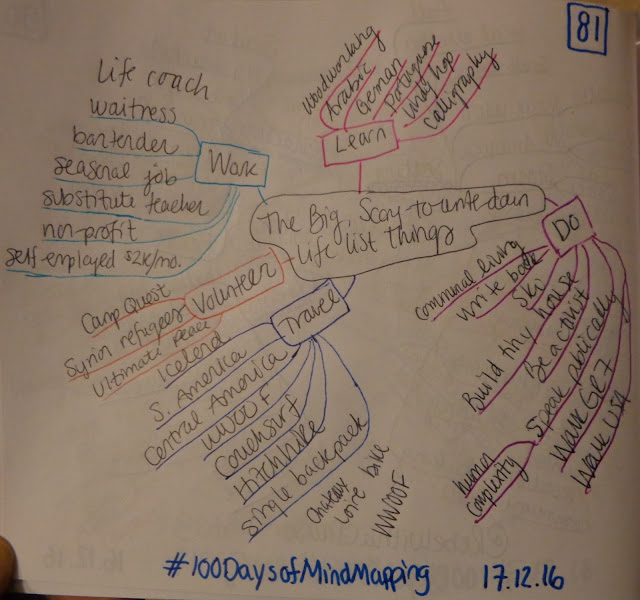 81
Life coach
waitress
bartender
seasonal job
substitute teacher
non-profit
self-employed $2K/mo.
Work
Woodworking
Arabic
German
Portuguese
Lindy hop
calligraphy
Learn
The Big, Scary-to-write-down
Life list things
Do
communal living
write book
Ski
Build tiny house
Be activist
Speak publically
human
complexity
Walk GR7
Walk USA
Volunteer
Camp Quest
Syrian refugees
Ultimate peace
Travel
Iceland
S. America
Central America
WWOOF
Couchsurf
Hitchhike
Single backpack
Loire bike
WWOOF
#100DaysofMindMapping
17.12.16